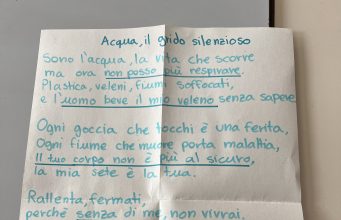 Acqua, il grido silenzioso
Sono l'acqua, la vita che scorre
ma ora non posso più respirare.
Plastica, veleni, fiumi soffocati,
e l'uomo beve il mio veleno senza sapere
Ogni goccia che tocchi è una ferita,
Ogni fiume che muore porta malattia,
Il tuo corpo non è più al sicuro,
la mia sete è la tua.
Rallenta, fermati,
perchè senza di me, non vivrai.